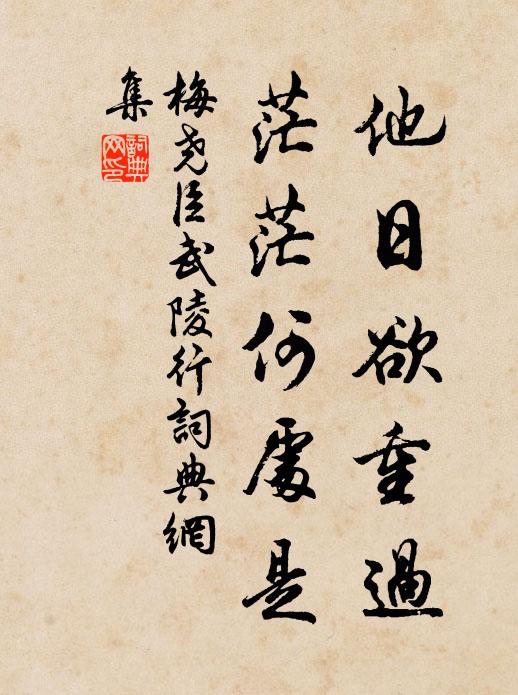 他日欲重過
茫茫何處是
梅堯臣武陵行詞典網
集
詞典網印